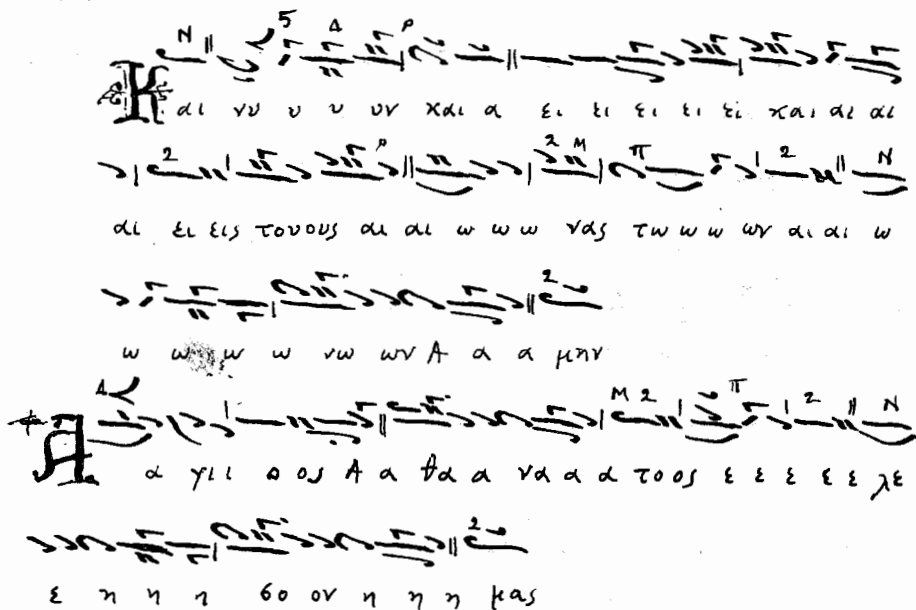 Και νυ υ υ υν και α ει ει ει ει εί και αι αι
αι ει εις τουους αι αι ω ω ω νας τω ω ω ων αι αι ω
ω ω ω ω νω ων Α α α μην
Α α γιι ο ος Α α θα α να α α τοος ε ε ε ε ε λε
ε η η η σο ον η η η μας